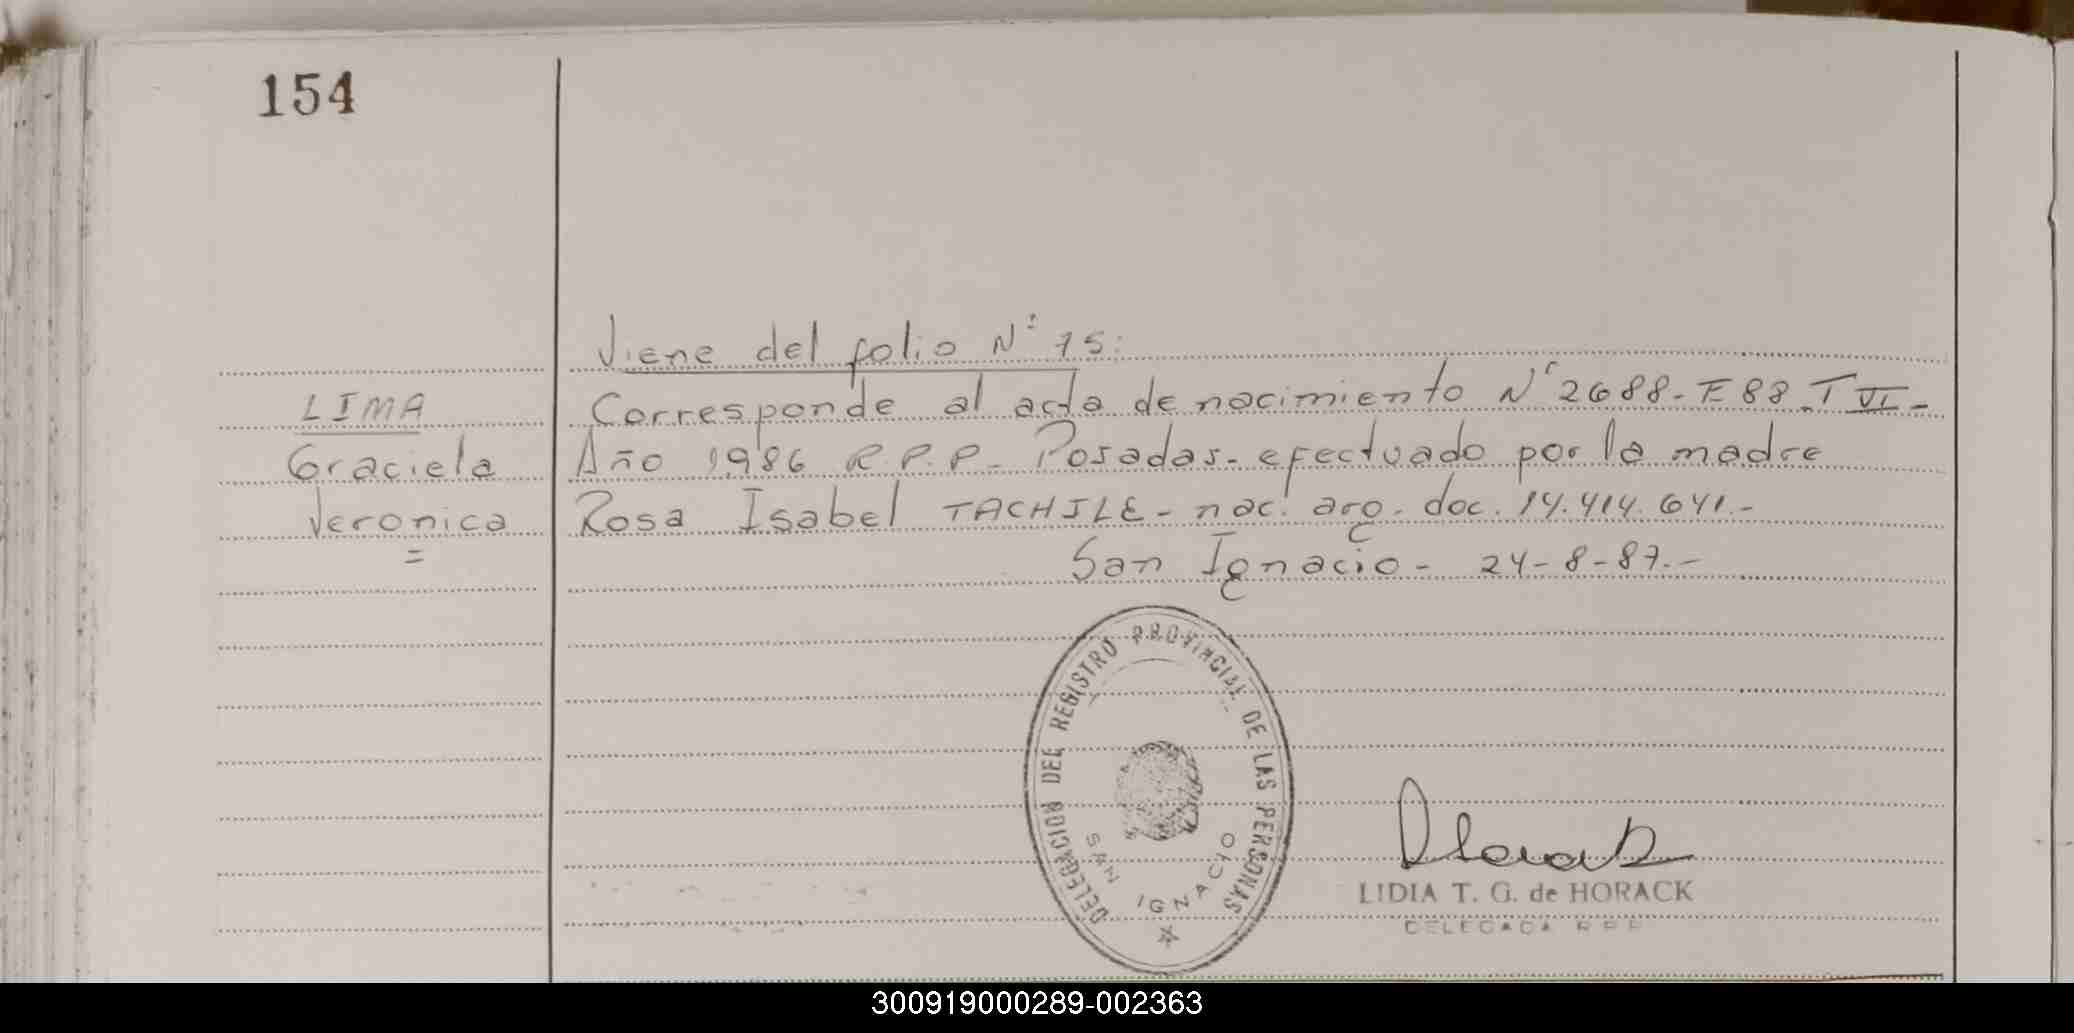 154
Viene del folio N° 75:
LIMA
Graciela
Veronica
Corresponde al acta de nacimiento N° 2688-F 88-T VI-
Año 1986 R.P.P- Posadas- efectuado por la madre
Rosa Isabel TACHILE- nac. arg. doc. 14.414.641.-
San Ignacio- 24-8-87.-
DELEGACION DEL REGISTRO PROVINCIAL DE LAS PERSONAS
SAN IGNACIO
LIDIA T. G. de HORACK
DELEGADA R P P
300919000289-002363